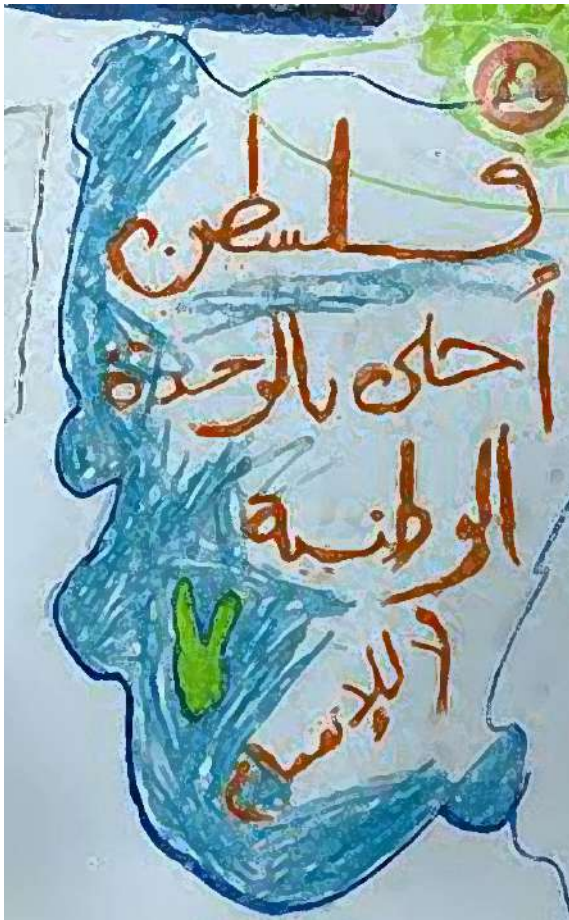 فلسطين
أحلى بالوحدة
الوطنية
لا للإنقسام